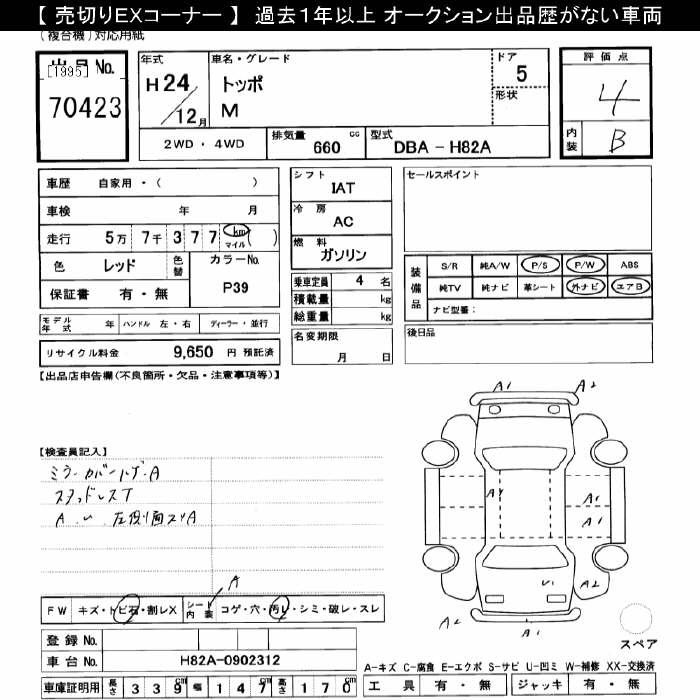 【 売切りEXコーナー 】 過去1年以上 オークション出品歴がない車両
(複合機)対応用紙
出品 No.
[1995]
70423
年式
H 24
12 月
車名・グレード
トッポ
M
ドア
5
形状
評価点
4
内装 B
2WD ・ 4WD
排気量 cc
660
型式
DBA - H82A
車歴 自家用・( )
車検 年 月
走行 5万 7千 3 7 7 km マイル ( )
色 レッド 色替
カラーNo.
P39
保証書 有・無
シフト
IAT
冷房
AC
燃料
ガソリン
乗車定員 4 名
積載量 kg
総重量 kg
セールスポイント
装備品
S/R 純A/W P/S P/W ABS
純TV 純ナビ 革シート 外ナビ エアB
ナビ型番:
モデル年式 年 ハンドル 左・右 ディーラー・並行
リサイクル料金 9,650 円 預託済
名変期限
月 日
後日品
【出品店申告欄(不良箇所・欠品・注意事項等)】
【検査員記入】
ミラーカバー ハゲ・A
スタッドレスT
A . U 左側面スリA
A1
A2
A4
A1
A1
U1
A2
A1
A2
A
FW キズ・トビ石・割レX
シート内装 コゲ・穴・汚レ・シミ・破レ・スレ
登録 No.
車台 No. H82A-0902312
車庫証明用 長さ 339 cm 幅 147 cm 高さ 170 cm
スペア
A-キズ C-腐食 E-エクボ S-サビ U-凹ミ W-補修 XX-交換済
工具 有・無 ジャッキ 有・無